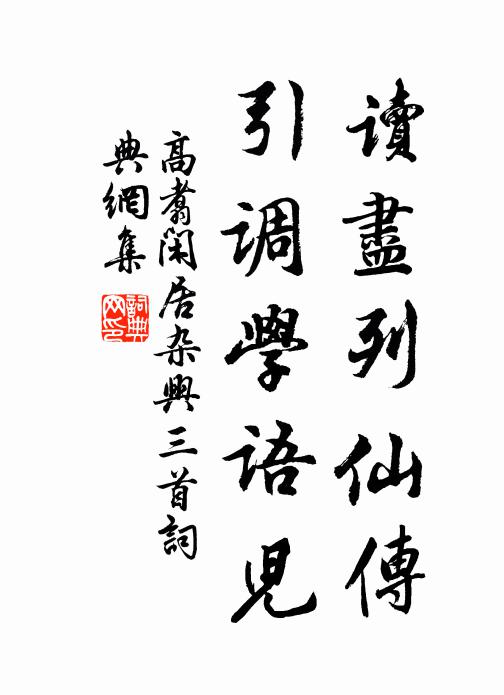 讀盡列仙傳
引調學語児
高翥閑居杂興三首詞
典網集
詞典网印